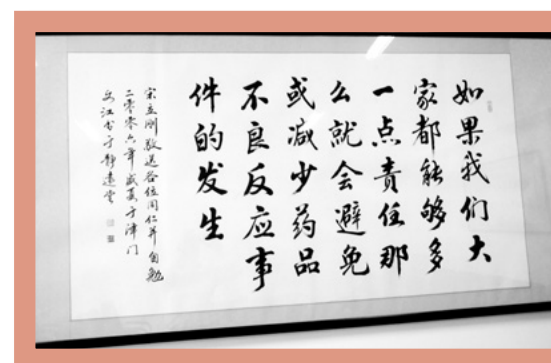 如果我们大
家都能够多
一点责任那
么就会避免
或减少药品
不良反应事
件的发生
宋立刚敬送各位同仁并自勉
二零零六年盛夏于津门
文江书于静远堂